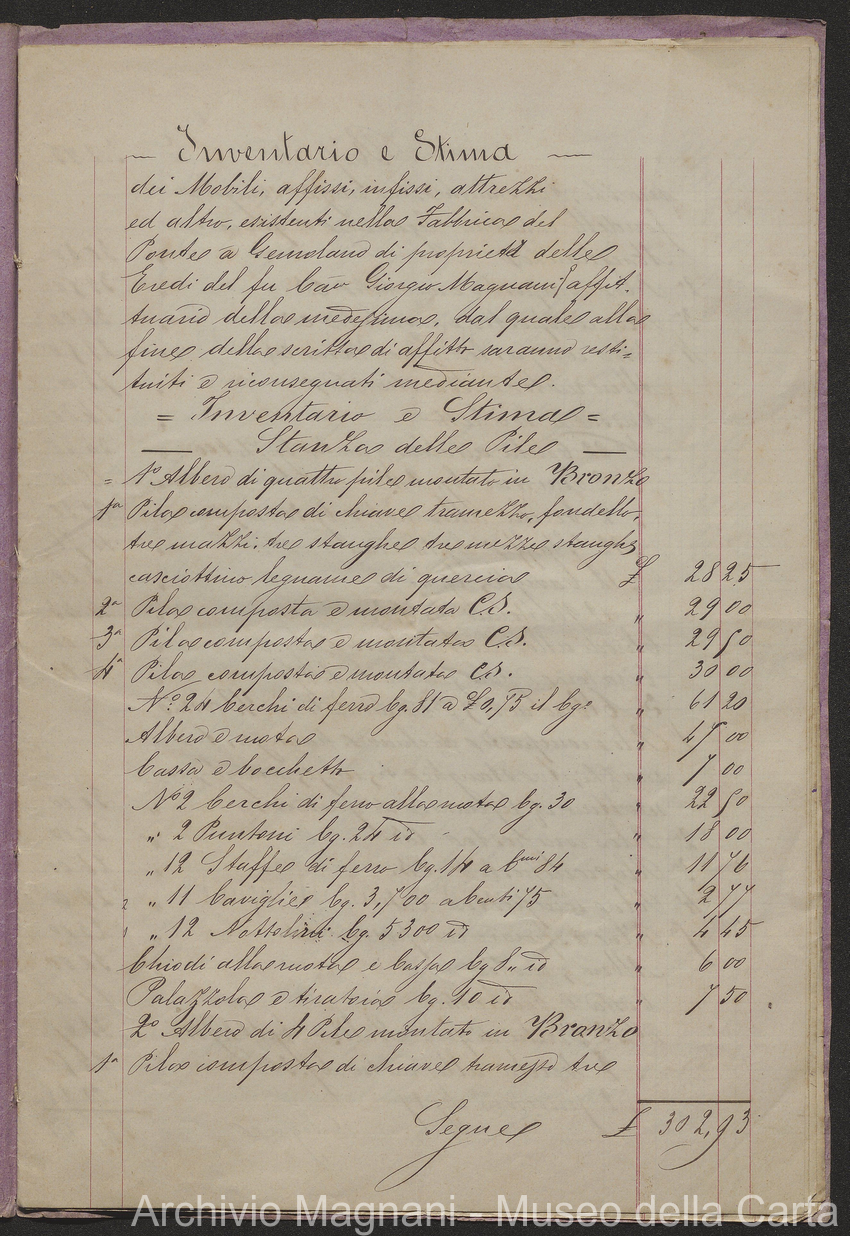 Inventario e Stima
dei Mobili, affissi, infissi, attrezzi
ed altro, esistenti nella Fabbrica del
Ponte a di proprietà delle
Eredi del fu Cav Giorgio Magnani affit-
tuario della medesima, dal quale alla
fine della scritta di affitto saranno resti=
tuiti e riconsegnati mediante.
= Inventario e Stima =
Stanza delle Pile
= 1º Albero di quattro pile montato in Bronzo
1ª Pila composta di chiave tramezzo, fondello,
tre mazzi, tre stanghe tre mezze stanghe
casciottino legname di quercia £ 28 25
2ª Pila composta e montata C.S. " 29 00
3ª Pila composta e montata C.S. " 29 50
4ª Pila composta e montata C.S. " 30 00
Nº 24 Cerchi di ferro Cg. 81 a £ 0,75 il Cgº " 61 20
Albero e mota " 47 00
Cassa e bocchetto " 7 00
Nº 2 Cerchi di ferro alla mota Cg. 30 " 22 50
" 2 Puntoni Cg. 24 id " 18 00
" 12 Staffe di ferro Cg. 14 a Cmi 84 " 11 76
" 11 Caviglie Cg. 3,700 a Centi 75 " 2 77
" 12 Nottolini Cg. 5300 id " 4 45
Chiodi alla mota e Cassa Cg 8,, id " 6 00
Palazzola e tiratoia Cg. 10 id " 7 50
2º Albero di 4 Pile montato in Bronzo
1ª Pila composta di chiave tramezzo tre
Segue £ 302,93
Archivio Magnani - Museo della Carta